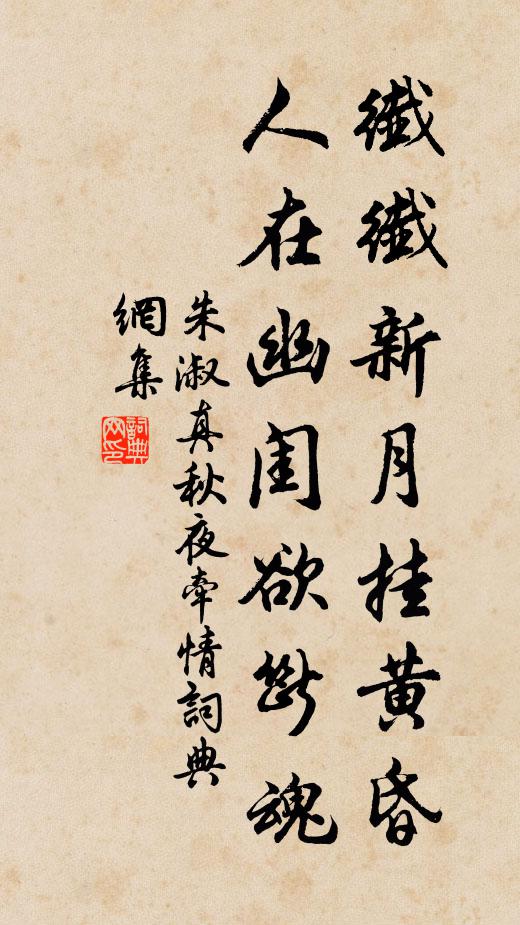 纖纖新月挂黄昏
人在幽闺欲斷魂
朱淑真秋夜牽情詞典
網集
詞典
网印